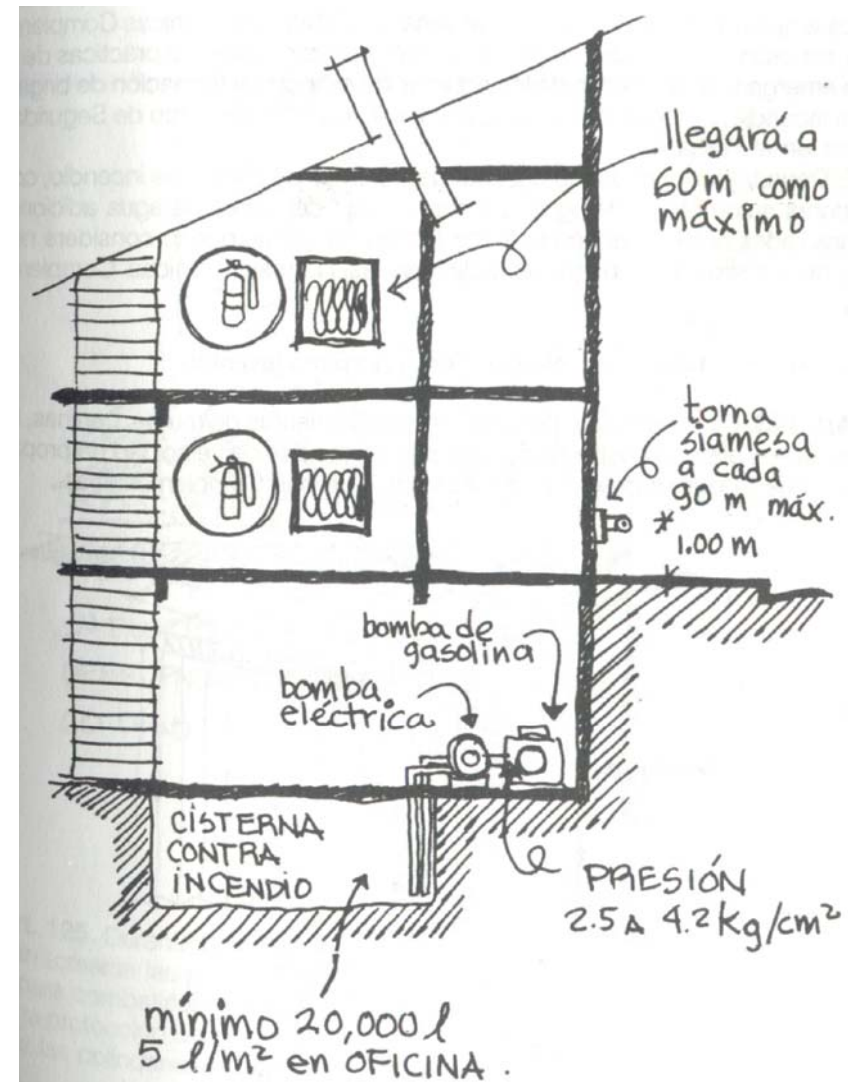 llegará a
60 m como
máximo
toma
siamesa
a cada
90 m máx.
1.00 m
bomba de
gasolina
bomba
eléctrica
CISTERNA
CONTRA
INCENDIO
PRESIÓN
2.5 A 4.2 Kg/cm²
mínimo 20,000 l
5 l/m² en OFICINA .